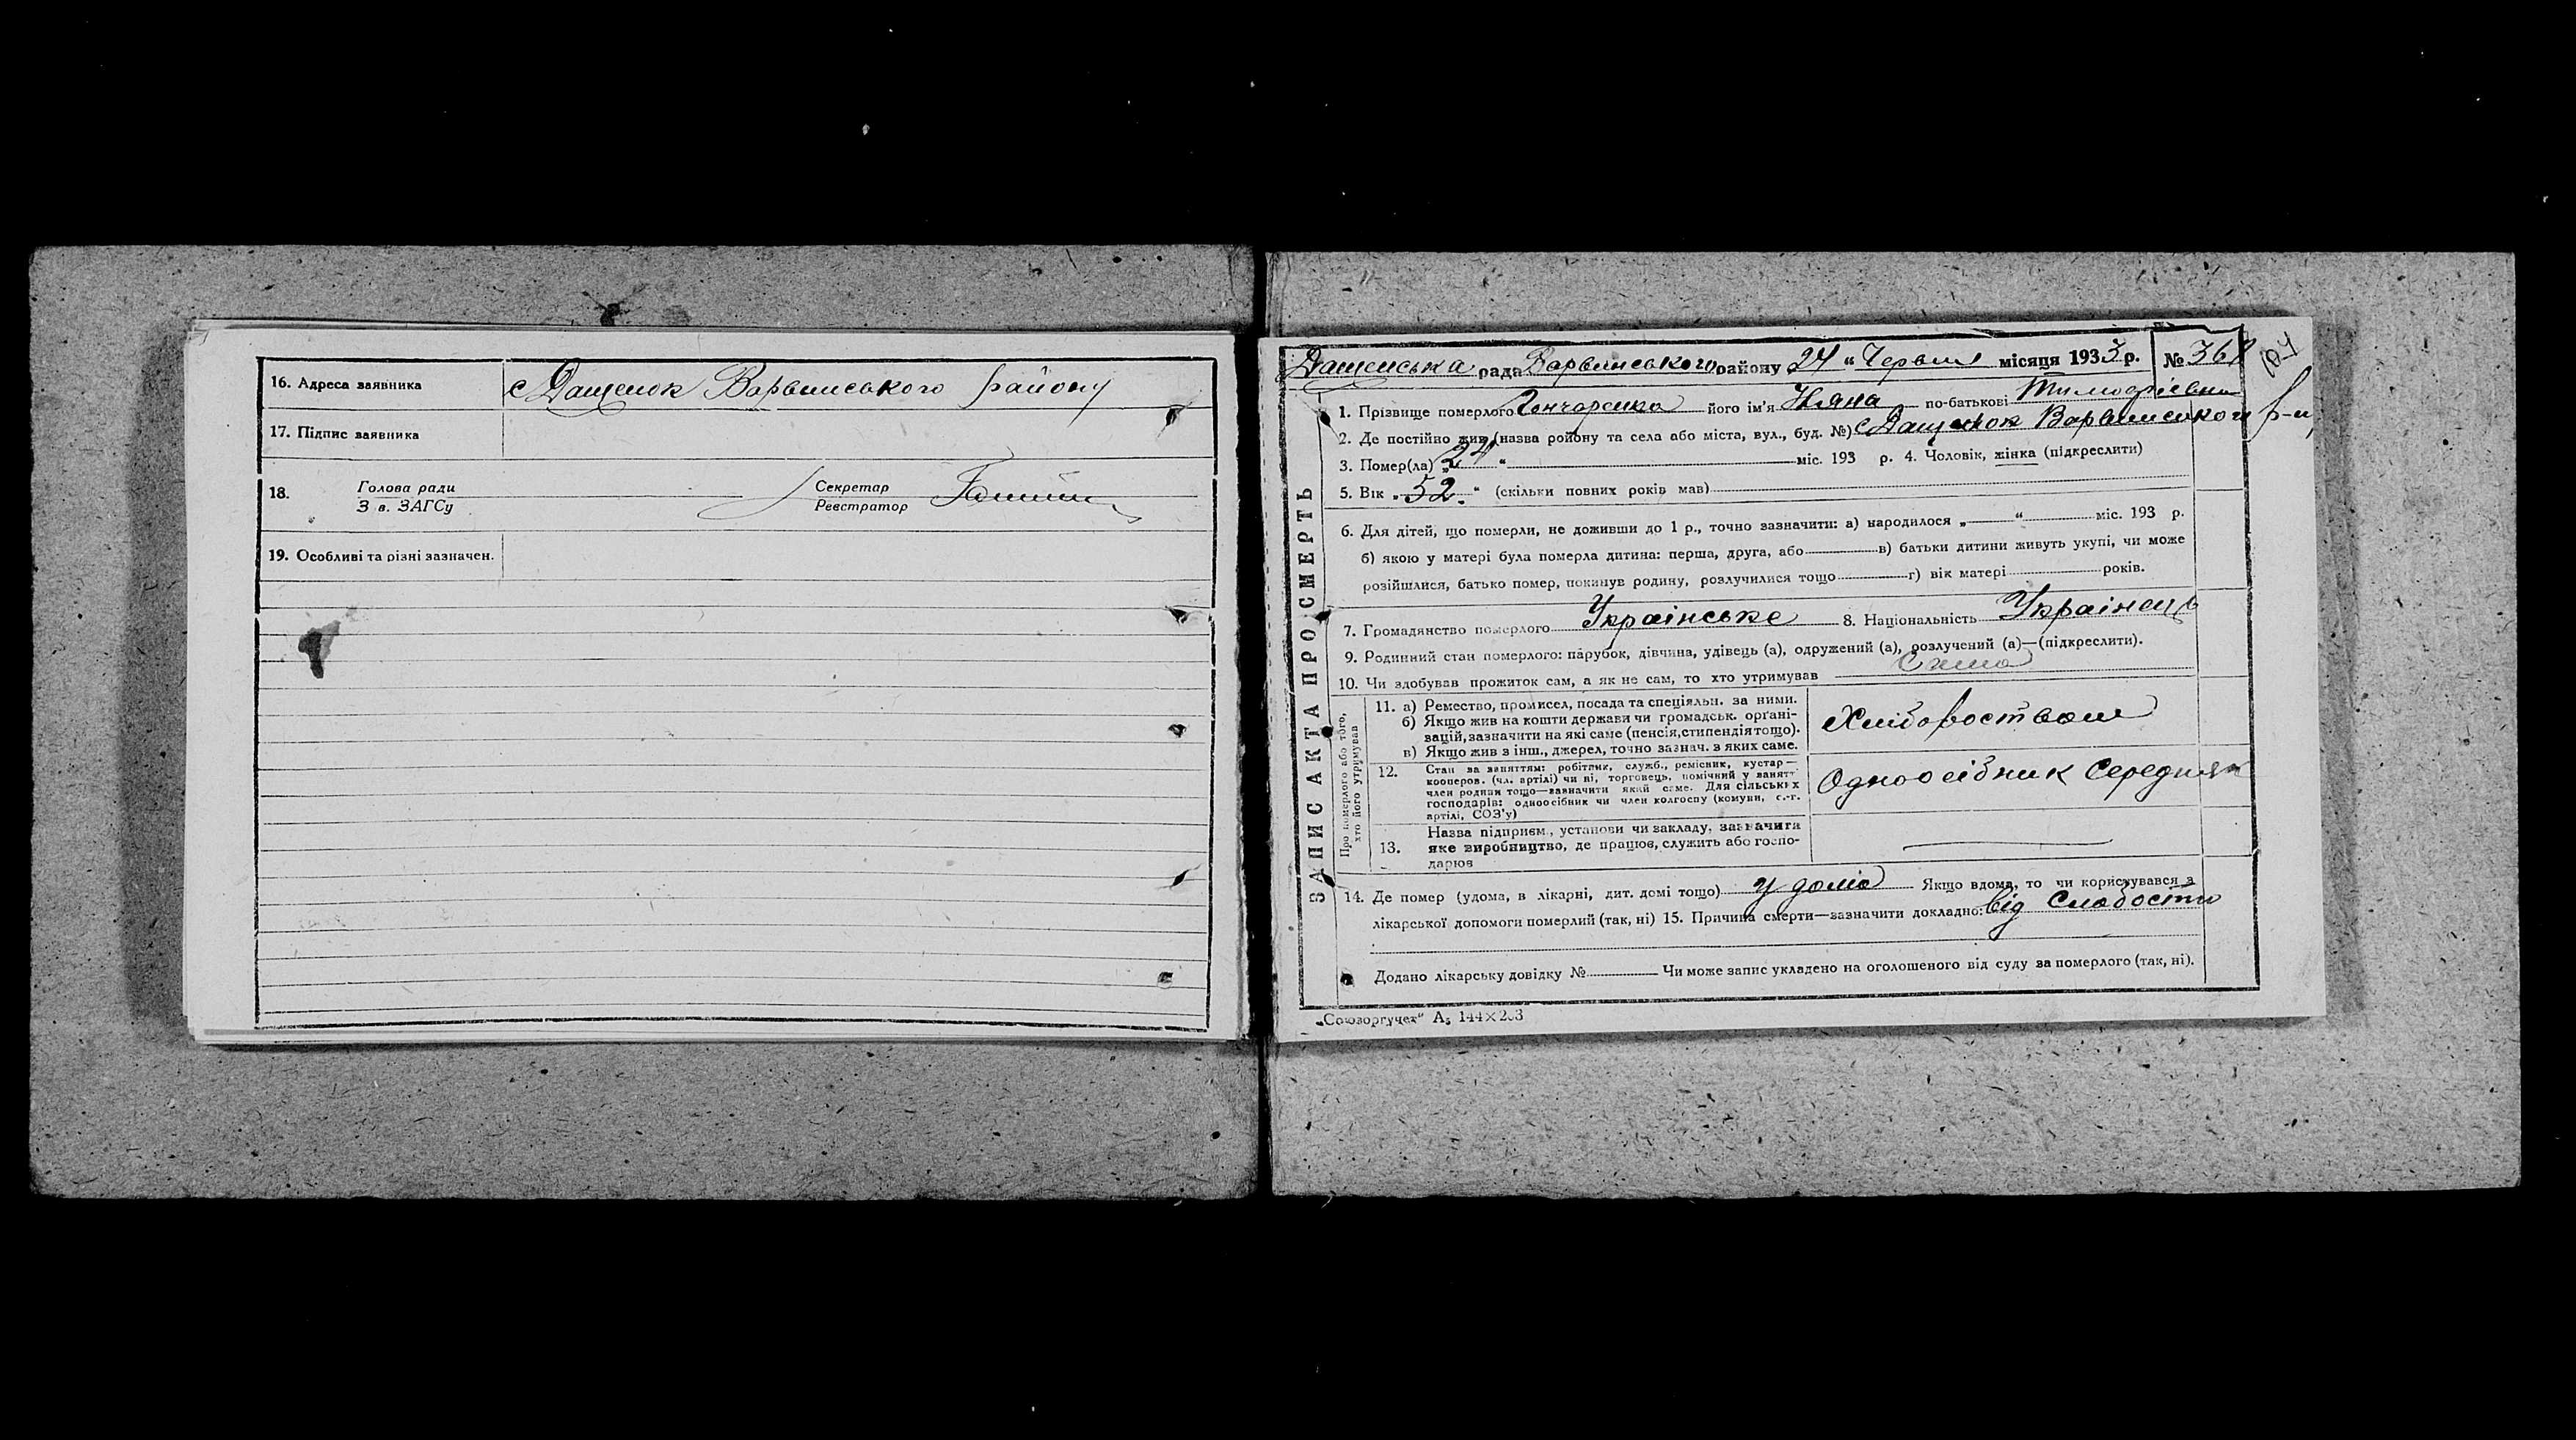 16. Адреса заявника с Дащенок Варвинського району
17. Підпис заявника
18. Голова ради Секретар
З в. ЗАГСу Реєстратор
19. Особливі та різні зазначен.
Дащенська рада Варвинського району 24 " Червня місяця 1933 р. № 368
ЗАПИС АКТА ПРО СМЕРТЬ
1. Прізвище померлого Гончаренко його ім'я Уляна по-батькові Тимофіевна
2. Де постійно жив (назва ройону та села або міста, вул., буд. №) с Дащенок Варвинського р-н,
3. Помер(ла) „24 " міс. 193 р. 4. Чоловік, жінка (підкреслити)
5. Вік „52" (скільки повних років мав)
6. Для дітей, що померли, не доживши до 1 р., точно зазначити: а) народилося „ " міс. 193 р.
б) якою у матері була померла дитина: перша, друга, або в) батьки дитини живуть укупі, чи може
розійшлися, батько помер, покинув родину, розлучилися тощо г) вік матері років.
7. Громадянство померлого Українське 8. Національність Українець
9. Родинний стан померлого: парубок, дівчина, удівець (а), одружений (а), розлучений (а)—(підкреслити).
10. Чи здобував прожиток сам, а як не сам, то хто утримував Сама
Про померлого або того,
хто його утримував
11. а) Ремество, промисел, посада та спеціяльн. за ними.
б) Якщо жив на кошти держави чи громадськ. орґані-
зацій, зазначити на які саме (пенсія, стипендія тощо).
в) Якщо жив з інш., джерел, точно зазнач. з яких саме.
Хліборобством
12. Стан за заняттям: робітник, служб., ремісник, кустар—
кооперов. (чл. артілі) чи ні, торговець, помічний у занятт
член родини тощо—зазначити який саме. Для сільських
господарів: одноосібник чи член колгоспу (комуни, с.-г.
артілі, СОЗ'у)
Одноосібник Середняк
13. Назва підприєм., установи чи закладу, зазначити
яке виробництво, де працює, служить або госпо-
дарює
14. Де помер (удома, в лікарні, дит. домі тощо) у дома Якщо вдома, то чи користувався з
лікарської допомоги померлий (так, ні) 15. Причина смерти—зазначити докладно: від Слабости
Додано лікарську довідку № Чи може запис укладено на оголошеного від суду за померлого (так, ні).
„Союзоргучет" А₅ 144×203